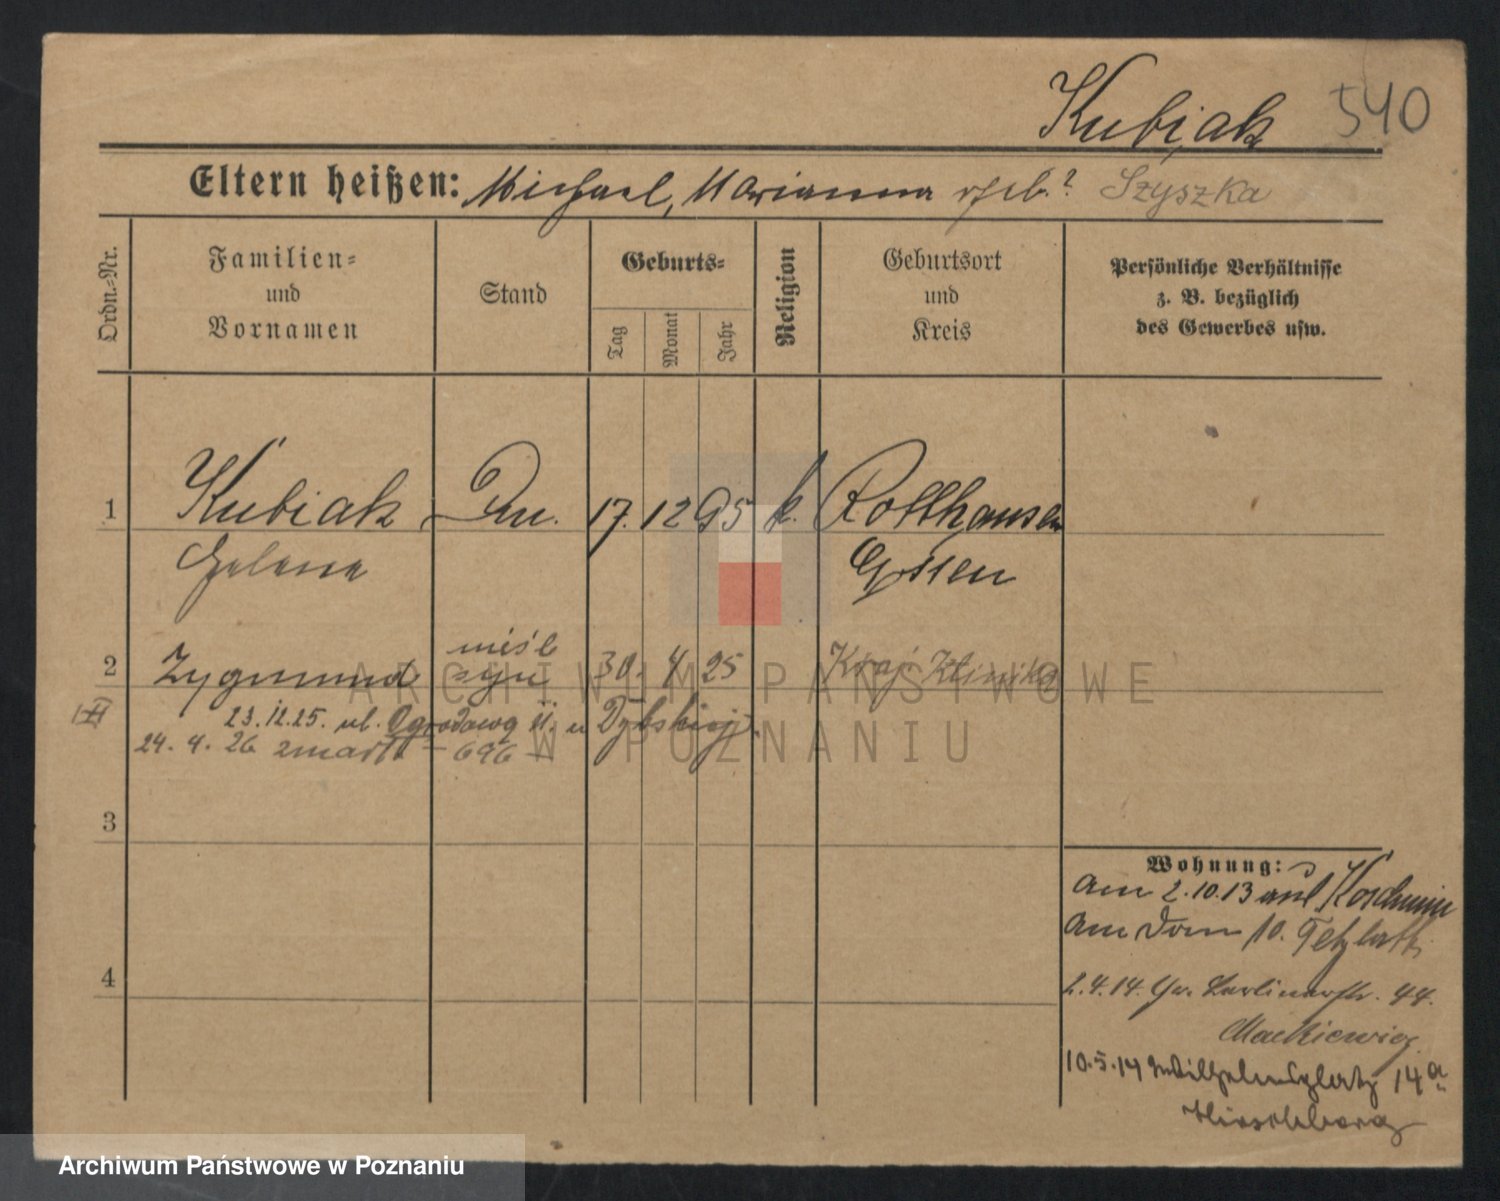 Kubiak 540
Eltern heißen: Michael, Marianna geb.? Szyszka
Ordn.-Nr.
Familien-
und
Vornamen
Stand
Geburts-
Tag
Monat
Jahr
Religion
Geburtsort
und
Kreis
Persönliche Verhältnisse
z. B. bezüglich
des Gewerbes usw.
1 Kubiak 17. 12 95 k. Rotthausen
Helena Essen
nieśl
2 Zygmund syn 30. 4 25
23.12.25. ul. Ogrodową 11. u
24. 4. 26 zmarł - 696 -
3
Wohnung:
am 2.10.13 aus Koschmin
am Dom 10.
4
2.4.14. Gr. Berlinerstr. 44.
Mackiewicz
10.5.14 Wilhelmsplatz 14a
Hirschberg
ARCHIWUM PAŃSTWOWE
W POZNANIU
Archiwum Państwowe w Poznaniu